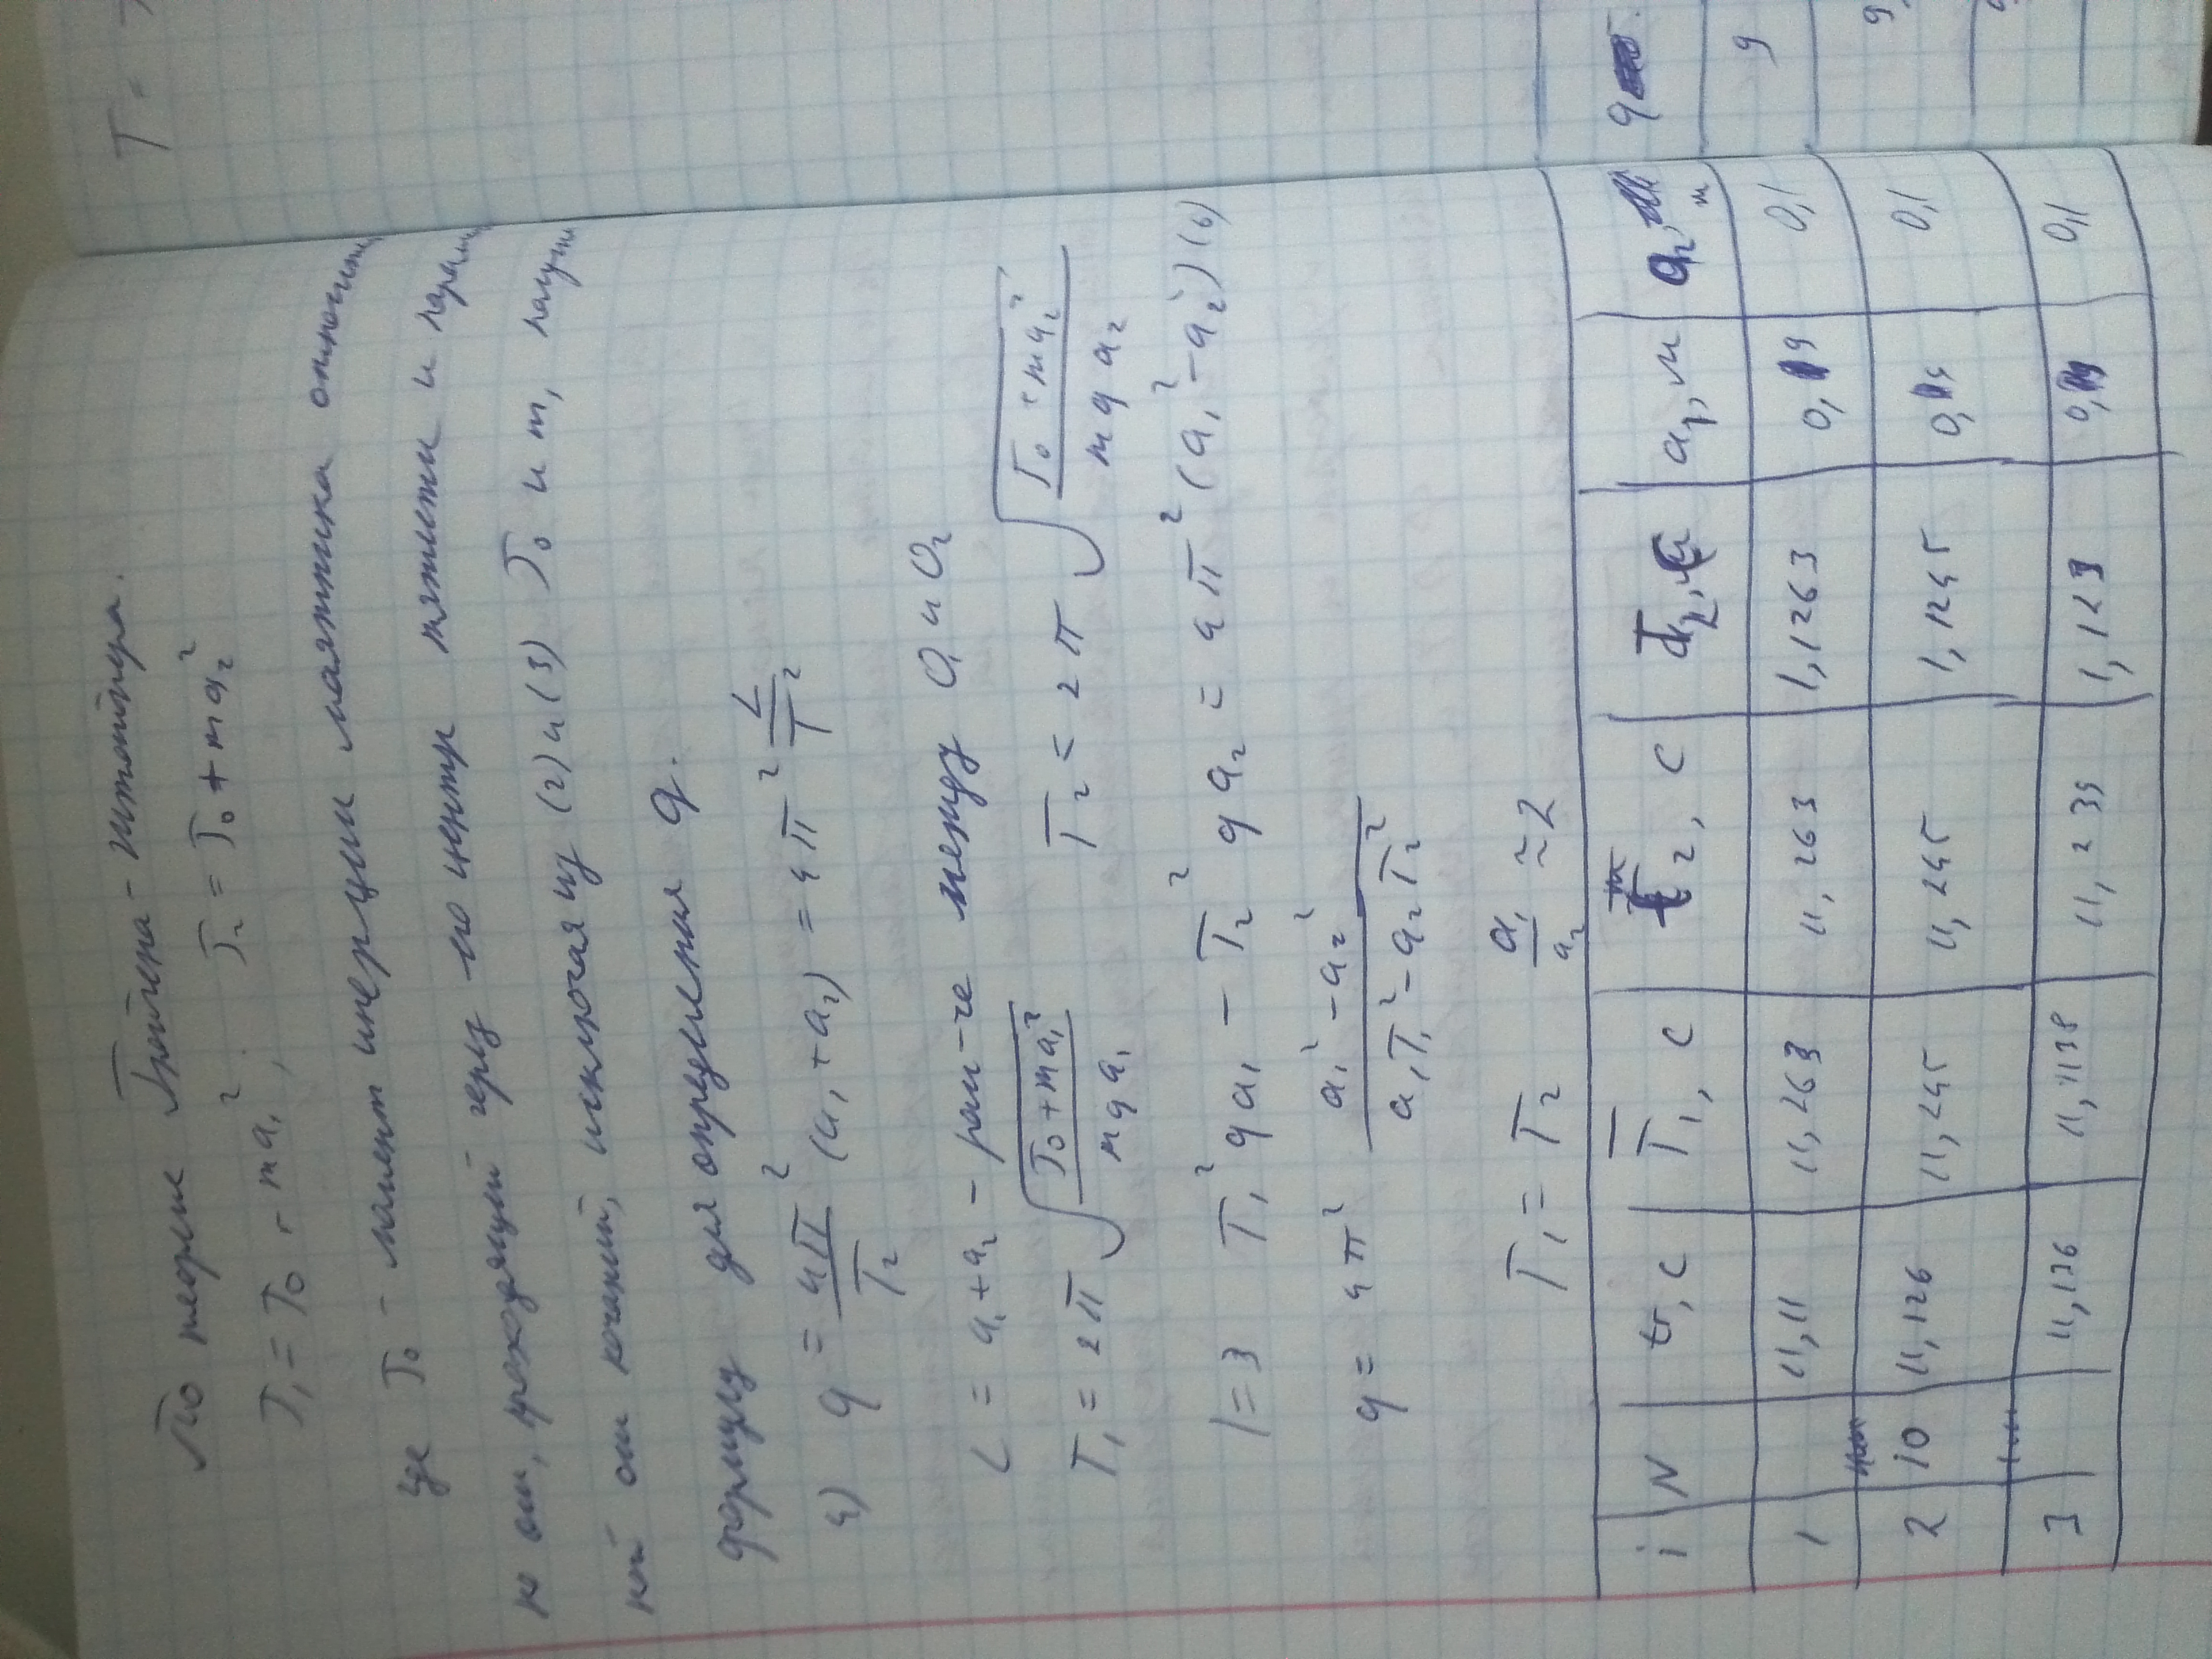 По теореме Гюйгенса-Штейнера.
J₁ = J₀ + ma₁², J₂ = J₀ + ma₂²
где J₀ - момент инерции маятника относит
но оси, проходящей через его центр тяжести и парал
ной оси качаний, исключая из (2) и (3) J₀ и m, получи
формулу для определения g.
4) g = 4π²/T² (a₁+a₂) = 4π² L/T²
L = a₁+a₂ - рас-ие между O₁ и O₂
T₁ = 2π √(J₀+ma₁²/mga₁) T₂ = 2π √(J₀+ma₂²/mga₂)
|=> T₁²ga₁ - T₂²ga₂ = 4π²(a₁²-a₂²) (6)
g = 4π² a₁²-a₂²/a₁T₁²-a₂T₂²
T₁ = T₂ a₁/a₂ ≈ 2
i N t₁, c T₁, c t₂, c T₂, c a₁, м a₂, м g
1 11,11 11,263 11,263 1,1263 0,1 9
2 10 11,126 11,245 11,245 1,1245 0,1 9,
3 11,136 11,1138 11,239 1,123 0,1
T =